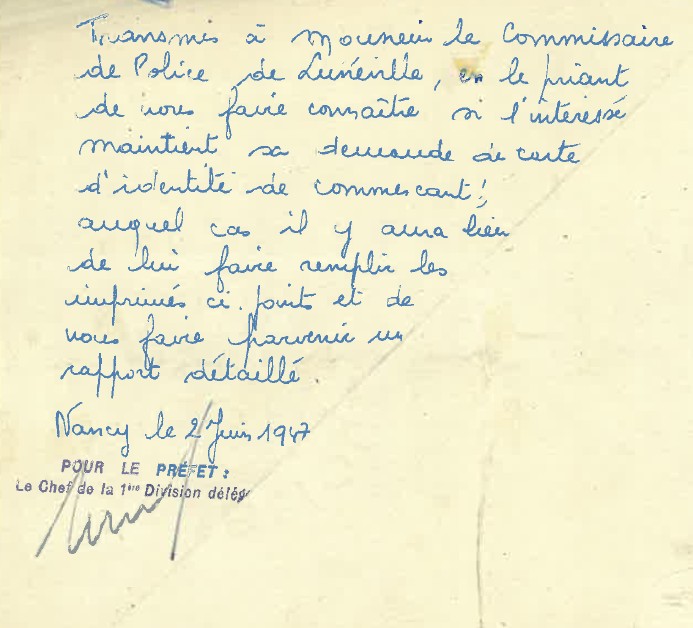 Transmis à Monsieur le Commissaire
de Police de Lunéville, en le priant
de nous faire connaître si l'intéressé
maintient sa demande de carte
d'identité de commerçant,
auquel cas il y aura lieu
de lui faire remplir les
imprimés ci-joints et de
nous faire parvenir un
rapport détaillé
Nancy le 2 Juin 1947
POUR LE PRÉFET :
Le Chef de la 1ère Division délég